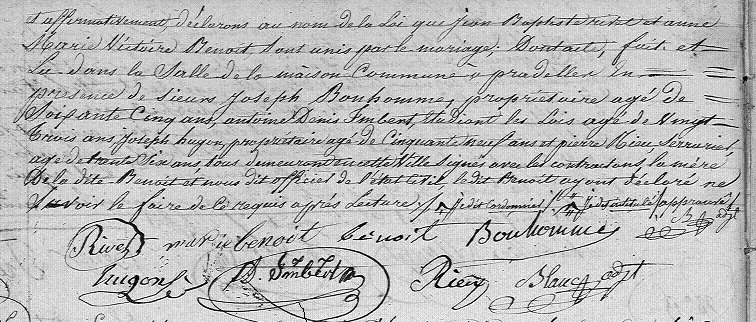 et affirmativement, déclarons au nom de la Loi que jean Baptiste rivet et anne
Marie Victoire Benoit sont unis par le mariage; Dont acte, fait et
Lu dans la Salle de la maison Commune a pradelles en
presence de sieurs Joseph Bonhomme, propriétaire agé de
Soixante Cinq ans, antoine Denis Imbert, Etudiant les Lois agé de Vingt
trois ans, Joseph hugon, propriétaire agé de Cinquante neuf ans et pierre Rieu, serrurier,
agé de trente Six ans tous demeurant en cette Ville signés avec les contractans, la mère
De la dite Benoit et nous dit officier de l'état civil, le dit Benoit ayant déclaré ne
Savoir le faire de Ce requis après Lecture
approuvé
Rivet marie benoit benoit Bonhomme
hugon D. Imbert Rieu Blanc adjt